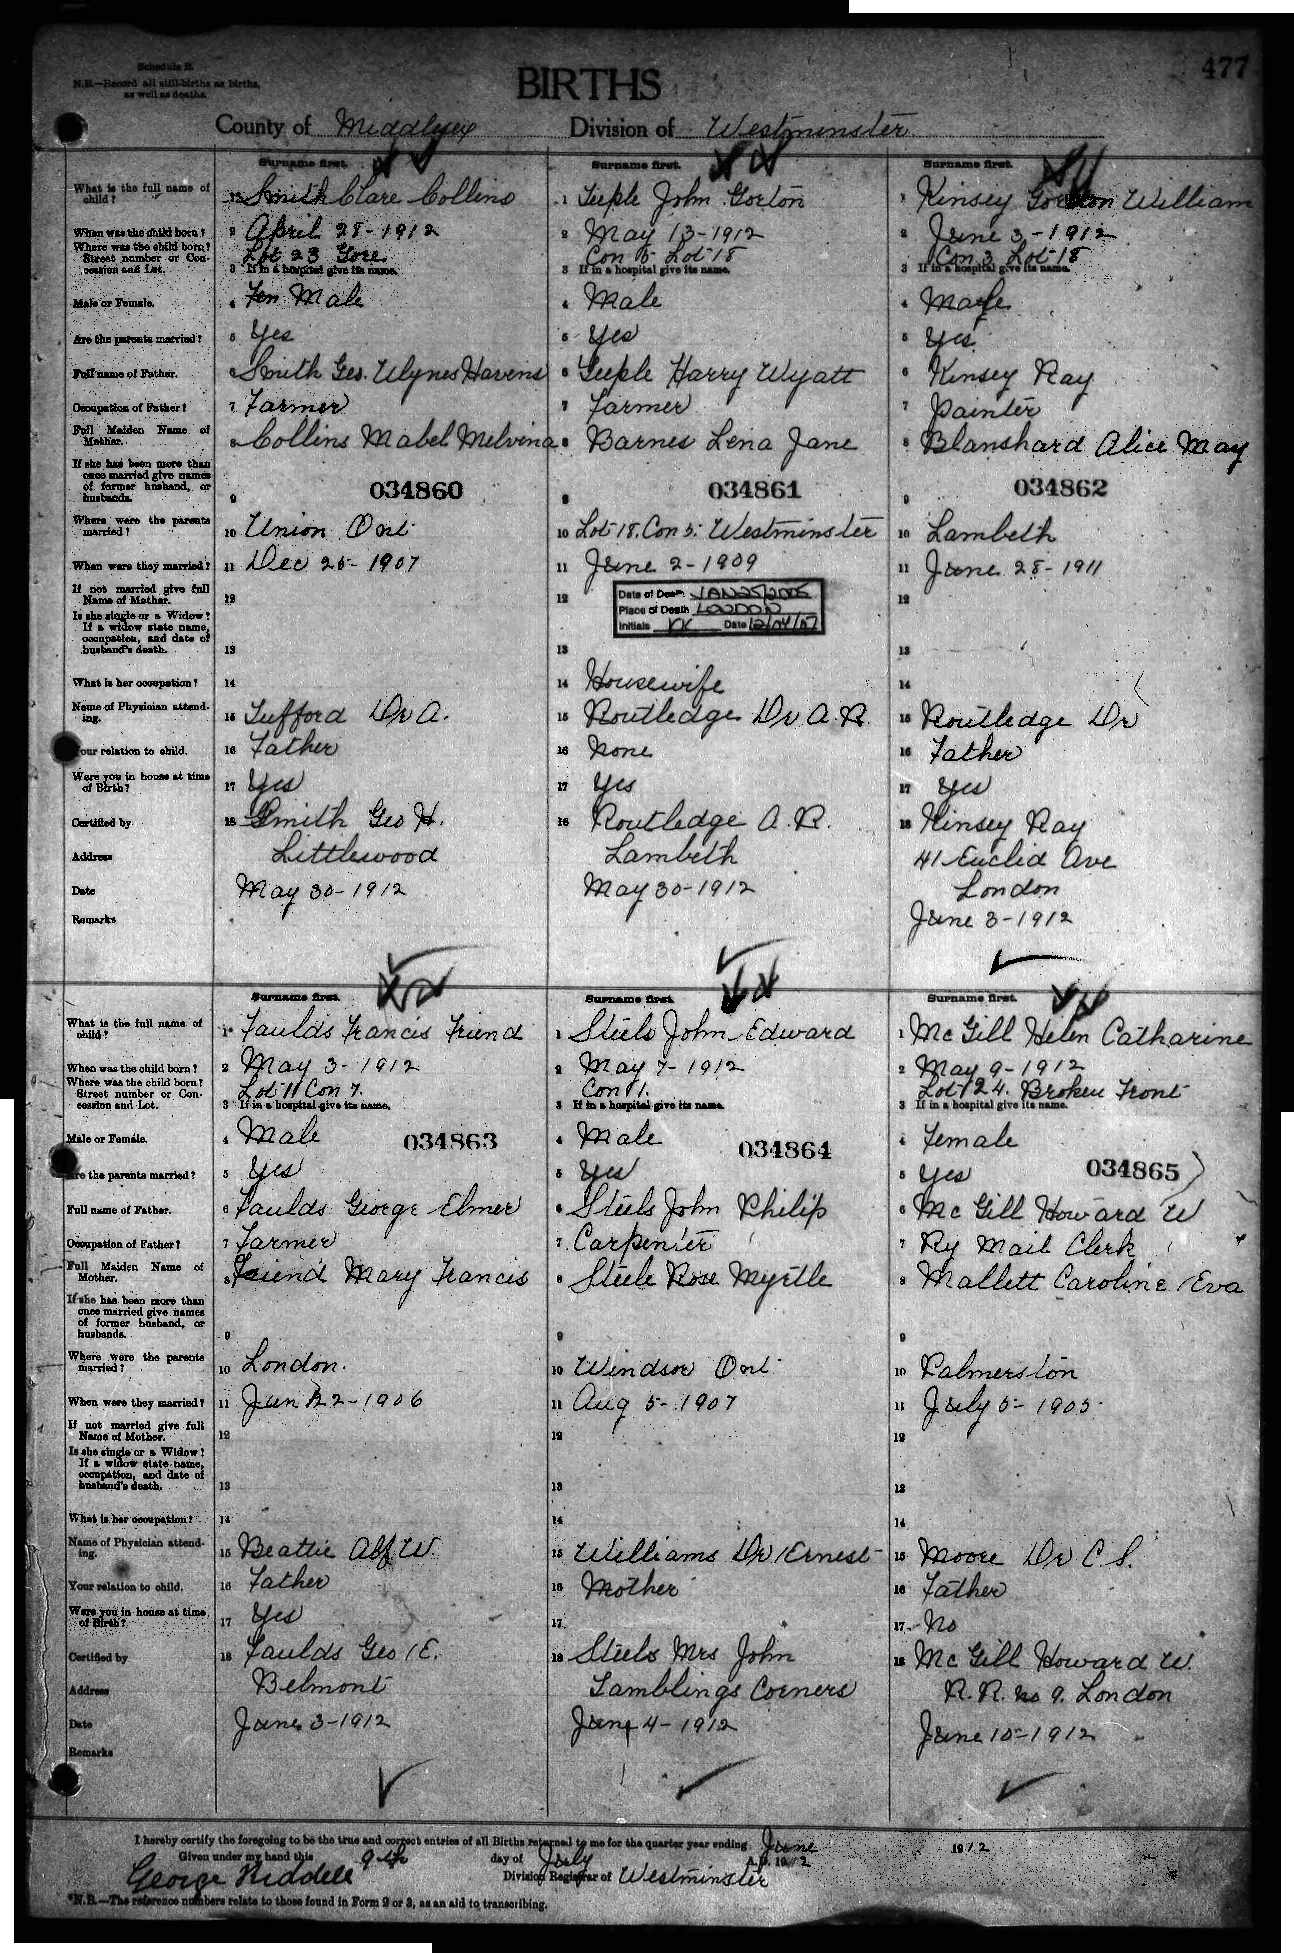 477
Schedule B.
N.B.—Record all still-births as births,
as well as deaths.
BIRTHS
County of Middlesex Division of Westminster
Surname first. Surname first. Surname first.
What is the full name of child? 1 Smith Clare Collins 1 Teeple John Gorton 1 Kinsey Gordon William
When was the child born? 2 April 28-1912 2 May 13-1912 2 June 3-1912
Where was the child born? Street number or Concession and Lot. Lot 23 Gore Con 5 Lot 18 Con 3 Lot 18
3 If in a hospital give its name. 3 If in a hospital give its name. 3 If in a hospital give its name.
Male or Female. 4 Male 4 Male 4 Male
Are the parents married? 5 Yes 5 Yes 5 Yes
Full name of Father. 6 Smith Geo. Ulynes Havens 6 Teeple Harry Wyatt 6 Kinsey Ray
Occupation of Father? 7 Farmer 7 Farmer 7 Painter
Full Maiden Name of Mother. 8 Collins Mabel Melvina 8 Barnes Lena Jane 8 Blanshard Alice May
If she has been more than once married give names of former husband, or husbands. 9 034860 9 034861 9 034862
Where were the parents married? 10 Union Ont 10 Lot 18. Con 5. Westminster 10 Lambeth
When were they married? 11 Dec 25-1907 11 June 2-1909 11 June 28-1911
If not married give full Name of Mother. 12 12 12
Date of Death JAN 25/2005
Place of Death LONDON
Initials KK Date 12/04/07
Is she single or a Widow? If a widow state name, occupation, and date of husband's death. 13 13 13
What is her occupation? 14 14 Housewife 14
Name of Physician attending. 15 Tufford Dr A. 15 Routledge Dr A. R. 15 Routledge Dr
Your relation to child. 16 Father 16 None 16 Father
Were you in house at time of Birth? 17 Yes 17 Yes 17 Yes
Certified by 18 Smith Geo H. 18 Routledge A. R. 18 Kinsey Ray
Address Littlewood Lambeth 41 Euclid Ave
London
Date May 30-1912 May 30-1912 June 3-1912
Remarks
Surname first. Surname first. Surname first.
What is the full name of child? 1 Faulds Francis Friend 1 Steels John Edward 1 McGill Helen Catharine
When was the child born? 2 May 3-1912 2 May 7-1912 2 May 9-1912
Where was the child born? Street number or Concession and Lot. Lot 11 Con 7. Con 1. Lot 124. Broken Front
3 If in a hospital give its name. 3 If in a hospital give its name. 3 If in a hospital give its name.
Male or Female. 4 Male 034863 4 Male 034864 4 Female
Are the parents married? 5 Yes 5 Yes 5 Yes 034865
Full name of Father. 6 Faulds George Elmer 6 Steels John Philip 6 McGill Howard W
Occupation of Father? 7 Farmer 7 Carpenter 7 Ry Mail Clerk
Full Maiden Name of Mother. 8 Friend Mary Francis 8 Steele Rose Myrtle 8 Mallett Caroline Eva
If she has been more than once married give names of former husband, or husbands. 9 9 9
Where were the parents married? 10 London. 10 Windsor Ont 10 Palmerston
When were they married? 11 Jun 22-1906 11 Aug 5-1907 11 July 5-1905
If not married give full Name of Mother. 12 12 12
Is she single or a Widow? If a widow state name, occupation, and date of husband's death. 13 13 13
What is her occupation? 14 14 14
Name of Physician attending. 15 Beattie Alf W. 15 Williams Dr Ernest 15 Moore Dr C S.
Your relation to child. 16 Father 16 Mother 16 Father
Were you in house at time of Birth? 17 Yes 17 17 No
Certified by 18 Faulds Geo E. 18 Steels Mrs John 18 McGill Howard W.
Address Belmont Tamblings Corners R. R. no 9. London
Date June 3-1912 June 4-1912 June 10-1912
Remarks
I hereby certify the foregoing to be the true and correct entries of all Births returned to me for the quarter year ending June 1912
Given under my hand this 9th day of July A.D. 1912
George Riddell Division Registrar of Westminster
*N.B.—The reference numbers relate to those found in Form 2 or 3, as an aid to transcribing.